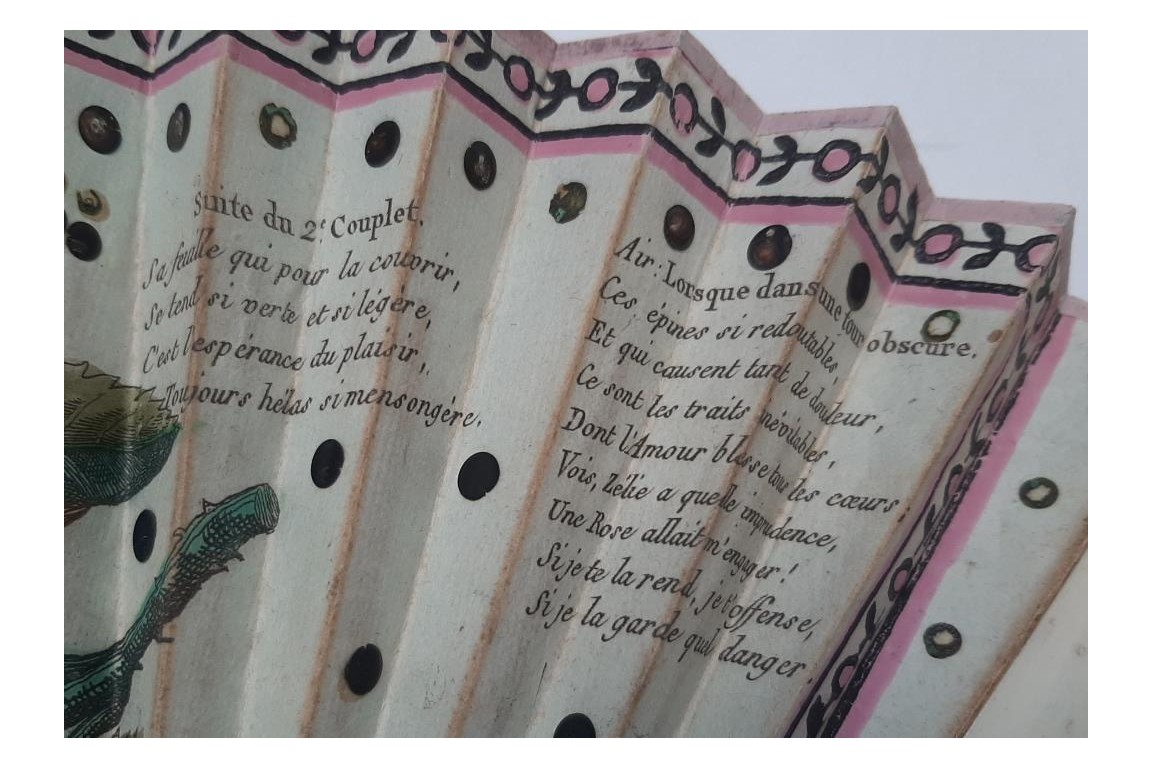 Suite du 2e. Couplet.
Sa feuille qui pour la couvrir,
Se tend si verte et si légère,
C'est l'espérance du plaisir,
Toujours hélas si mensongère.
Air: Lorsque dans une tour obscure.
Ces épines si redoutables,
Et qui causent tant de douleur,
Ce sont les traits inévitables,
Dont l'Amour blesse tous les cœurs;
Vois, Zélie a quelle imprudence,
Une Rose allait m'engager!
Si je te la rend, je t'offense,
Si je la garde quel danger.